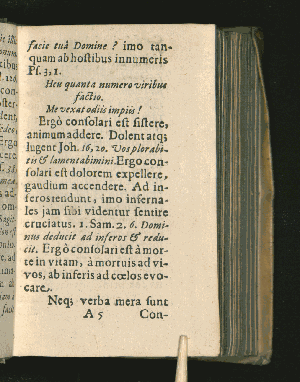 facie tuâ Domine ? imo tan-
quam ab hostibus innumeris
Ps. 3, 1.
Heu quanta numero viribus
factio.
Me vexat odiis impiis !
Ergò consolari est sistere,
animum addere. Dolent atq;
lugent Joh. 16, 20. Vos plorabi-
tis & lamentabimini. Ergo con-
solari est dolorem expellere,
gaudium accendere. Ad in-
feros tendunt, imo inferna-
les jam sibi videntur sentire
cruciatus. 1. Sam. 2. 6. Domi-
nus deducit ad inferos & redu-
cit. Ergò consolari est à mor-
te in vitam, à mortuis ad vi-
vos, ab inferis ad cœlos evo-
care.
Neq; verba mera sunt
A 5 Con-